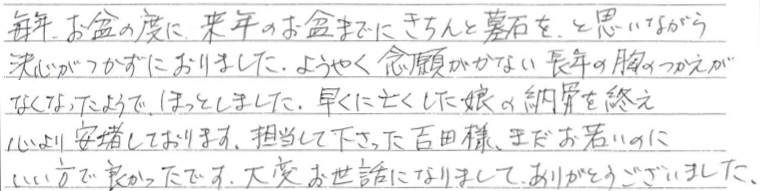 毎年、お盆の度に、来年のお盆までにきちんと墓石を、と思いながら
決心がつかずにおりました。ようやく念願がかない長年の胸のつかえが
なくなったようで、ほっとしました。早くに亡くした娘の納骨を終え
心より安堵しております。担当して下さった百田様、まだお若いのに
いい方で良かったです。大変お世話になりまして、ありがとうございました。